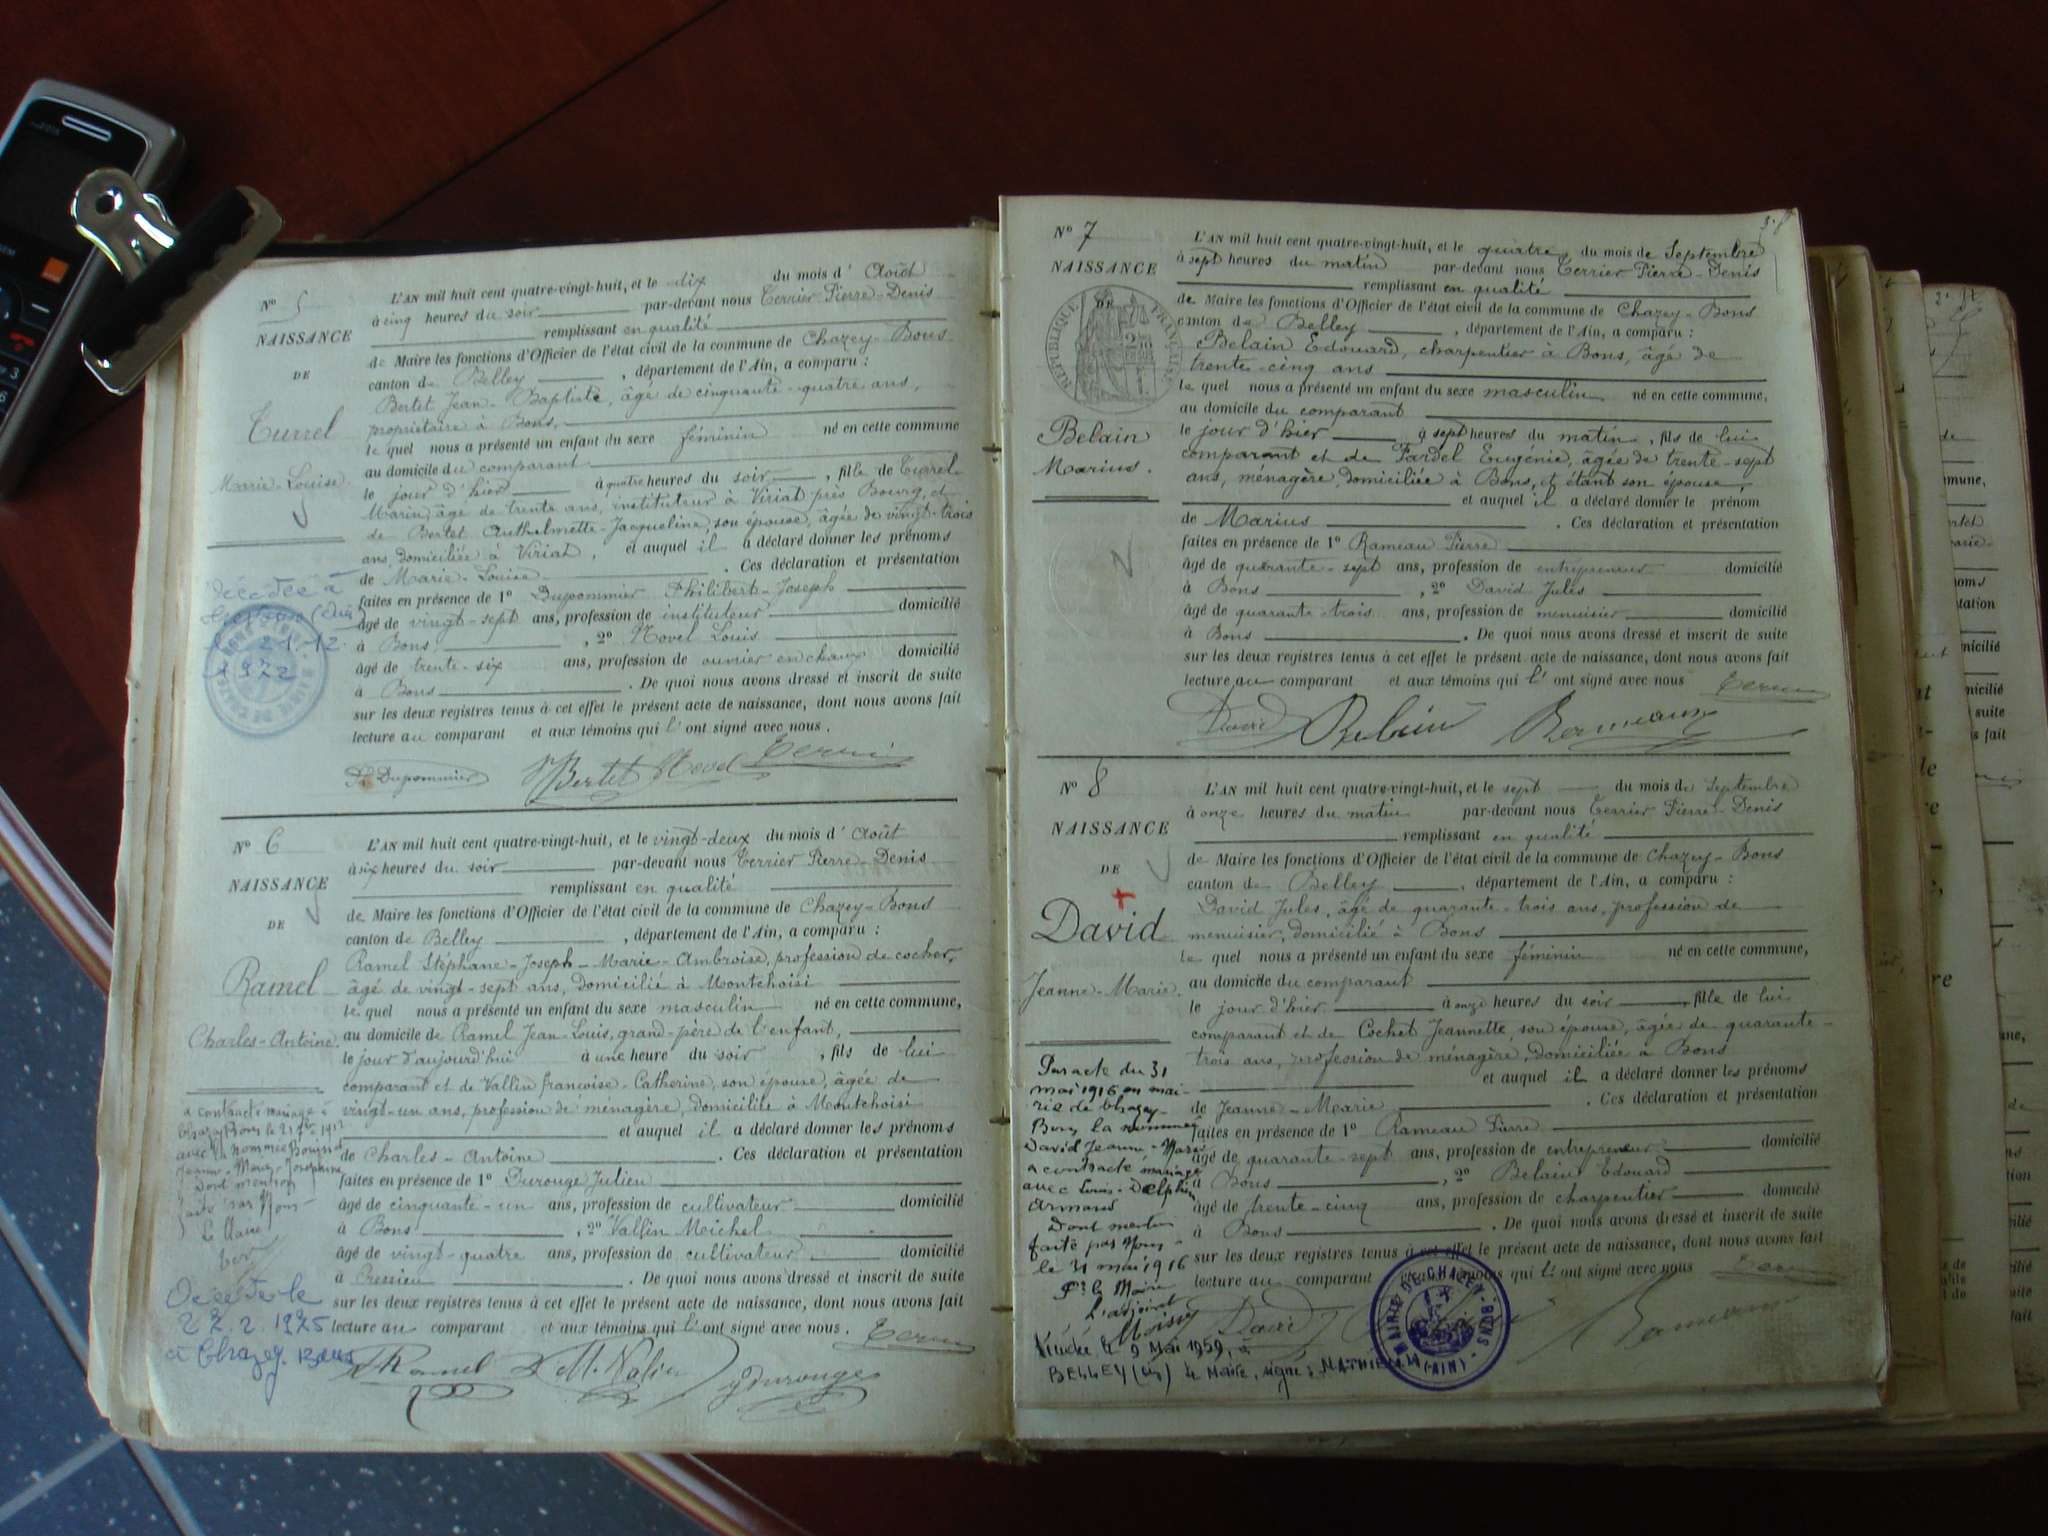 N° 5
NAISSANCE
DE
Turrel
Marie-Louise
L'AN mil huit cent quatre-vingt-huit, et le dix du mois d' Août
à cinq heures du soir par-devant nous Terrier Pierre-Denis
remplissant en qualité
de Maire les fonctions d'Officier de l'état civil de la commune de Chazey-Bons
canton de Belley, département de l'Ain, a comparu :
Bertet Jean-Baptiste, âgé de cinquante-quatre ans,
propriétaire à Bons,
le quel nous a présenté un enfant du sexe féminin né en cette commune
au domicile du comparant
le jour d'hier à quatre heures du soir, fille de Turrel
Marin, âgé de trente ans, instituteur à Viriat près Bourg, et
de Bertet Anthelmette-Jacqueline, son épouse, âgée de vingt-trois
ans, domiciliée à Viriat, et auquel il a déclaré donner les prénoms
de Marie-Louise. Ces déclaration et présentation
faites en présence de 1° Dupommier Philibert-Joseph
âgé de vingt-sept ans, profession de instituteur domicilié
à Bons, 2° Novel Louis
âgé de trente-six ans, profession de ouvrier en chaux domicilié
à Bons. De quoi nous avons dressé et inscrit de suite
sur les deux registres tenus à cet effet le présent acte de naissance, dont nous avons fait
lecture au comparant et aux témoins qui l'ont signé avec nous.
Dupommier Bertet Novel Terrier
décédée à
le 21.12.
1972
N° 6
NAISSANCE
DE
Ramel
Charles-Antoine.
L'AN mil huit cent quatre-vingt-huit, et le vingt-deux du mois d' Août
à six heures du soir par-devant nous Terrier Pierre-Denis
remplissant en qualité
de Maire les fonctions d'Officier de l'état civil de la commune de Chazey-Bons
canton de Belley, département de l'Ain, a comparu :
Ramel Stéphane-Joseph-Marie-Ambroise, profession de cocher,
âgé de vingt-sept ans, domicilié à Montchoisi
le quel nous a présenté un enfant du sexe masculin né en cette commune,
au domicile de Ramel Jean-Louis, grand-père de l'enfant,
le jour d'aujourd'hui à une heure du soir, fils de lui
comparant et de Vallin françoise-Catherine, son épouse, âgée de
vingt-un ans, profession de ménagère, domiciliée à Montchoisi
et auquel il a déclaré donner les prénoms
de Charles-Antoine. Ces déclaration et présentation
faites en présence de 1° Durouge Julien
âgé de cinquante-un ans, profession de cultivateur domicilié
à Bons, 2° Vallin Michel
âgé de vingt-quatre ans, profession de cultivateur domicilié
à Cressieu. De quoi nous avons dressé et inscrit de suite
sur les deux registres tenus à cet effet le présent acte de naissance, dont nous avons fait
lecture au comparant et aux témoins qui l'ont signé avec nous. Terrier
Ramel M. Valin Durouge
a contracté mariage à
Chazey Bons le
avec la nommée
Jeanne-Marie-Josephine
Dont mention
faite par Nous
Le Maire
Décédé le
27.2.1975
à Chazey-Bons
N° 7
NAISSANCE
DE
RÉPUBLIQUE FRANÇAISE
Belain
Marius.
L'AN mil huit cent quatre-vingt-huit, et le quatre, du mois de Septembre
à sept heures du matin par-devant nous Terrier Pierre-Denis
remplissant en qualité
de Maire les fonctions d'Officier de l'état civil de la commune de Chazey-Bons
canton de Belley, département de l'Ain, a comparu :
Belain Edouard, charpentier à Bons, âgé de
trente-cinq ans
le quel nous a présenté un enfant du sexe masculin né en cette commune,
au domicile du comparant
le jour d'hier à sept heures du matin, fils de lui
comparant et de Fardel Eugénie, âgée de trente-sept
ans, ménagère, domiciliée à Bons, et étant son épouse,
et auquel il a déclaré donner le prénom
de Marius. Ces déclaration et présentation
faites en présence de 1° Rameau Pierre
âgé de quarante-sept ans, profession de entrepreneur domicilié
à Bons, 2° David Jules
âgé de quarante-trois ans, profession de menuisier domicilié
à Bons. De quoi nous avons dressé et inscrit de suite
sur les deux registres tenus à cet effet le présent acte de naissance, dont nous avons fait
lecture au comparant et aux témoins qui l'ont signé avec nous Terrier
David Belain Rameaux
N° 8
NAISSANCE
DE
David
Jeanne-Marie.
L'AN mil huit cent quatre-vingt-huit, et le sept du mois de Septembre
à onze heures du matin par-devant nous Terrier Pierre-Denis
remplissant en qualité
de Maire les fonctions d'Officier de l'état civil de la commune de Chazey-Bons
canton de Belley, département de l'Ain, a comparu :
David Jules, âgé de quarante-trois ans, profession de
menuisier, domicilié à Bons
le quel nous a présenté un enfant du sexe féminin né en cette commune,
au domicile du comparant
le jour d'hier à onze heures du soir, fille de lui
comparant et de Cochet Jeannette, son épouse, âgée de quarante-
trois ans, profession de ménagère, domiciliée à Bons
et auquel il a déclaré donner les prénoms
de Jeanne-Marie. Ces déclaration et présentation
faites en présence de 1° Rameau Pierre
âgé de quarante-sept ans, profession de entrepreneur domicilié
à Bons, 2° Belain Edouard
âgé de trente-cinq ans, profession de charpentier domicilié
à Bons. De quoi nous avons dressé et inscrit de suite
sur les deux registres tenus à cet effet le présent acte de naissance, dont nous avons fait
lecture au comparant et aux témoins qui l'ont signé avec nous
David
Par acte du 31
mai 1916 en mai-
rie de Chazey-
Bons la nommée
David Jeanne-Marie
a contracté mariage
avec Louis-Delphin
Armand
Dont mention
faite par Nous
le 31 mai 1916
Pr le Maire
L'adjoint
9 Mai 1959, à
BELLEY (Ain) le Maire, signé :
MAIRIE DE CHAZEY-BONS (AIN)